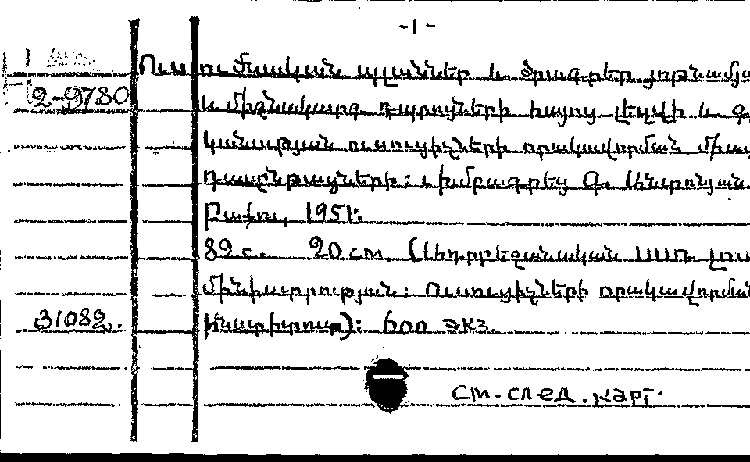 -1-
Ուսումնական պլաններ և ծրագրեր յոթնամյա
2-9780
և միջնակարգ դպրոցների հայոց լեզվի և գ
կանության ուսուցիչների որակավորման միամ
դասընթացների: Խմբագրեց Գ. Անտոնյան.
Բաքու, 1951:
89 с. 20 см. (Ադրբեջանական ՍՍՌ լուս
մինիստրություն: Ուսուցիչների որակավորման
31082. ինստիտուտ): 600 экз.
см. след. карт.